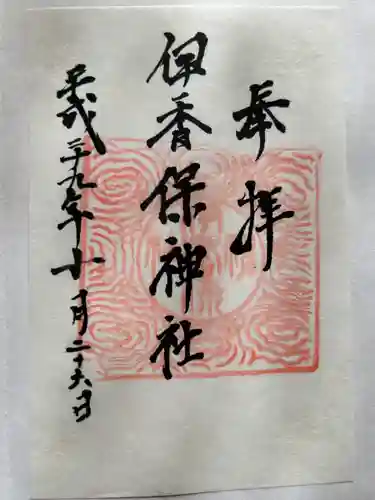 奉拝
伊香保神社
平成二十九年十一月二十六日